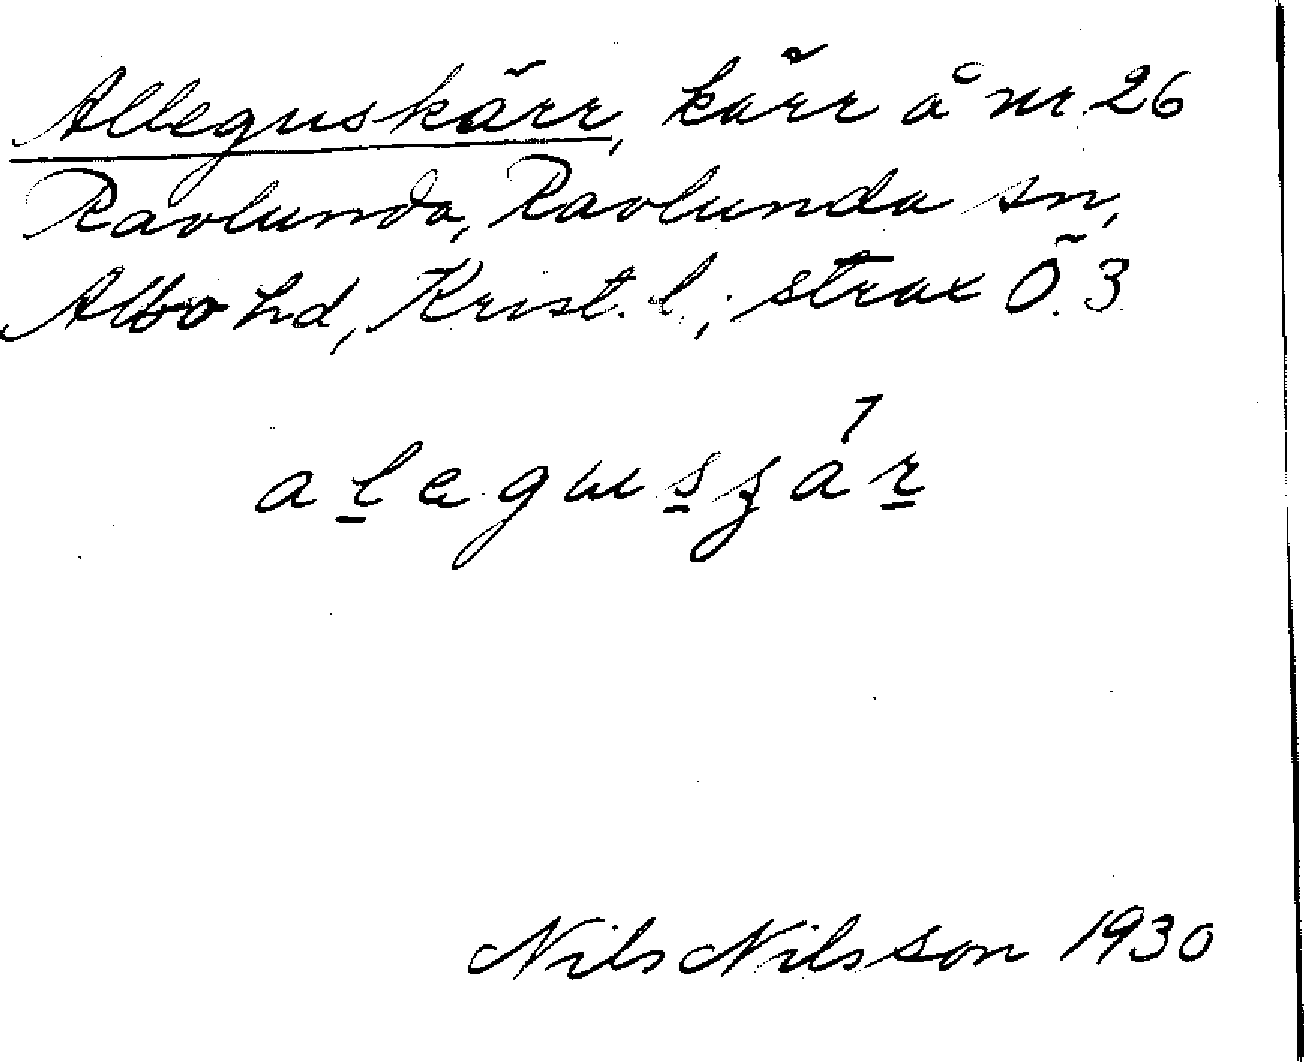 Alleguskärr, kärr å nr 26
Ravlunda, Ravlunda sn,
Albo hd, Krist. l.; strax Ö. 3
Nils Nilsson 1930